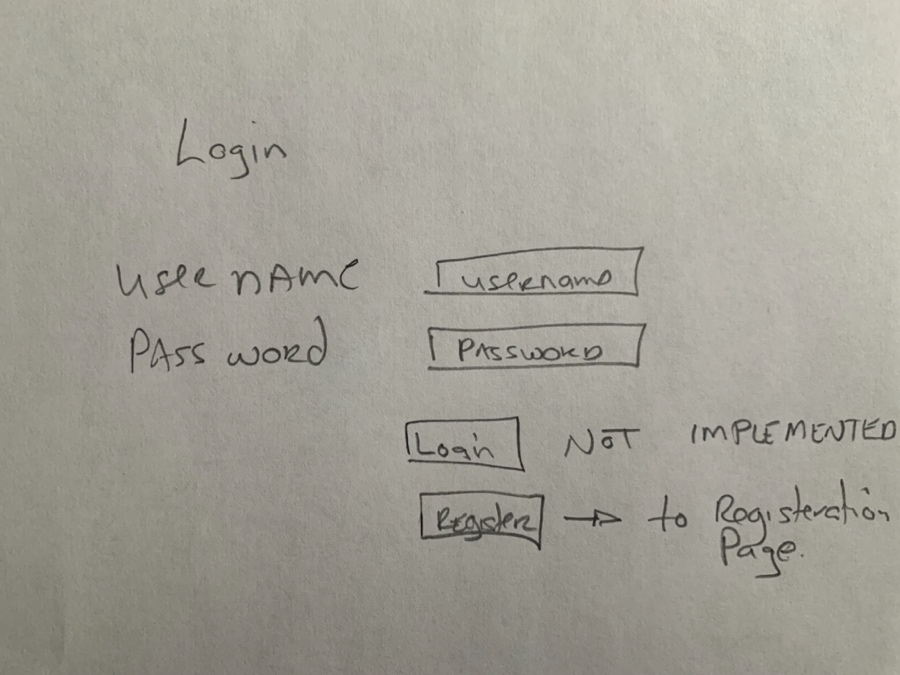 Login
USERNAME username
PASSWORD PASSWORD
Login NOT IMPLEMENTED
Register → to Registeration
Page.